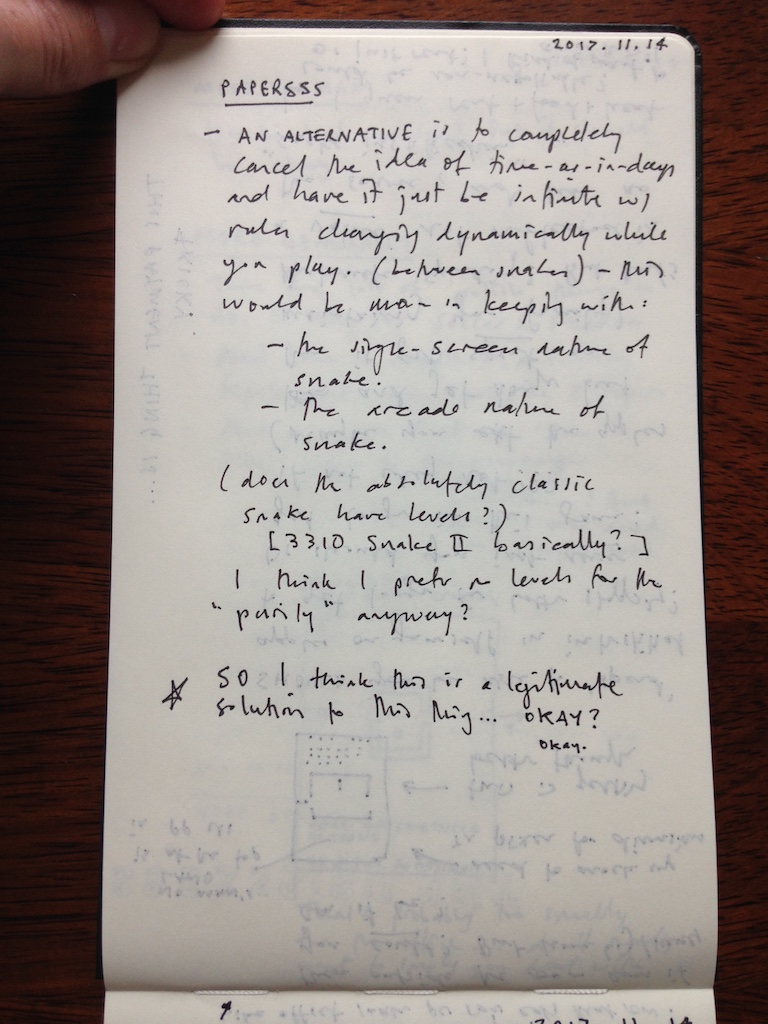 2017.11.14
PAPERSSS
- AN ALTERNATIVE is to completely
cancel the idea of time-as-in-days
and have it just be infinite w/
rules changing dynamically while
you play. (between snakes) - this
would be more in keeping with:
- the single-screen nature of
snake.
- the arcade nature of
snake.
(does the absolutely classic
snake have levels?)
[3310 Snake II basically?]
I think I prefer no levels for the
"purity" anyway?
☆ SO I think this is a legitimate
solution to this thing... OKAY?
okay.